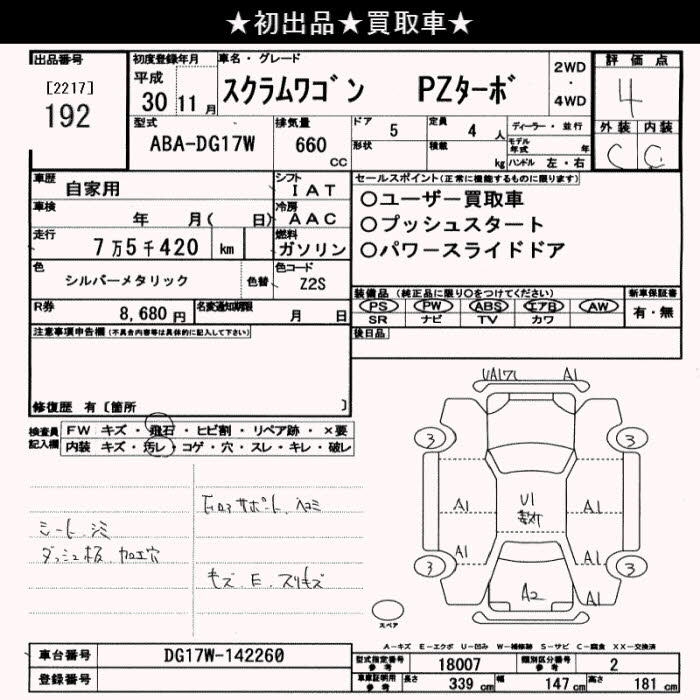 ★初出品★買取車★
出品番号
[2217]
192
初度登録年月
平成
30 11 月
車名・グレード
スクラムワゴン PZターボ
2WD
・
4WD
評価点
4
外装 内装
C C
型式
ABA-DG17W
排気量
660
cc
ドア 5
形状
定員 4 人
積載 kg
ディーラー・並行
モデル年式 年
ハンドル 左・右
車歴 自家用
シフト IAT
車検 年 月( 日)
冷房 AAC
走行 7万5千420 km
燃料 ガソリン
色 シルバーメタリック
色替
色コード Z2S
R券 8,680 円
名変通知期限 月 日
セールスポイント(正常に機能するものに限ります)
○ユーザー買取車
○プッシュスタート
○パワースライドドア
装備品 (純正品に限り○をつけてください)
新車保証書
PS PW ABS エアB AW
SR ナビ TV カワ
有・無
後日品
注意事項申告欄(不具合内容等は具体的に記入して下さい)
修復歴 有〔箇所 〕
検査員記入欄
FW キズ・飛石・ヒビ割・リペア跡・×要
内装 キズ・汚レ・コゲ・穴・スレ・キレ・破レ
シート シミ
ダッシュ板 加工穴
コアサポート ヘコミ
キズ、E、スリキズ
A1
3 3
A1 U1 A1
A1 A1
3 3
A2 A1
スペア
A-キズ E-エクボ U-凹み W-補修跡 S-サビ C-腐食 XX-交換済
車台番号 DG17W-142260
登録番号
型式指定番号 参考 18007
類別区分番号 参考 2
車庫証明用 参考 長さ 339 cm 幅 147 cm 高さ 181 cm